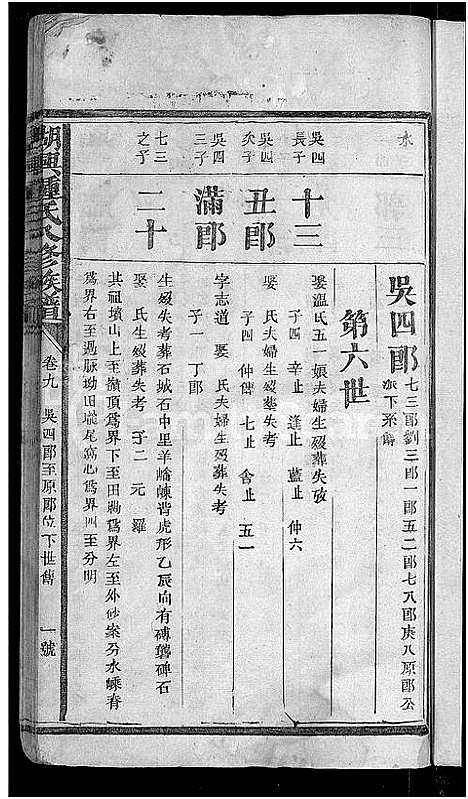 吳四郎 七三郎劉三郎一郎五二郎七八郎庚八原郎公
派下系傳
第六世
吳四
長子
十三
娶溫氏五一娘夫婦生歿葬失攷
子四 辛止 逢止 藍止 仲六
吳四
次子
丑郎
娶 氏夫婦生歿葬失考
子四 仲傳 七止 舍止 五一
吳四
三子
滿郎
字志道 娶 氏夫婦生歿葬失考
子一 丁郎
七三
之子
二十
生歿失考葬石城石中里羊嶠崠背虎形乙辰向有磚龔碑石
娶 氏生歿葬失考 子二 元 羅
其祖墳山上至嶺頂爲界下至田勘爲界左至外砂案分水嵊脊
爲界右至過脈坳田壠尾窩心爲界四至分明
鍾氏 修族譜
卷九
吳四郎至原郎位下世傳
一號